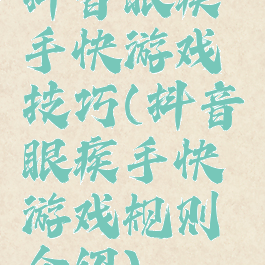 抖音眼疾
手快游戏
技巧(抖音
眼疾手快
游戏规则
介绍)